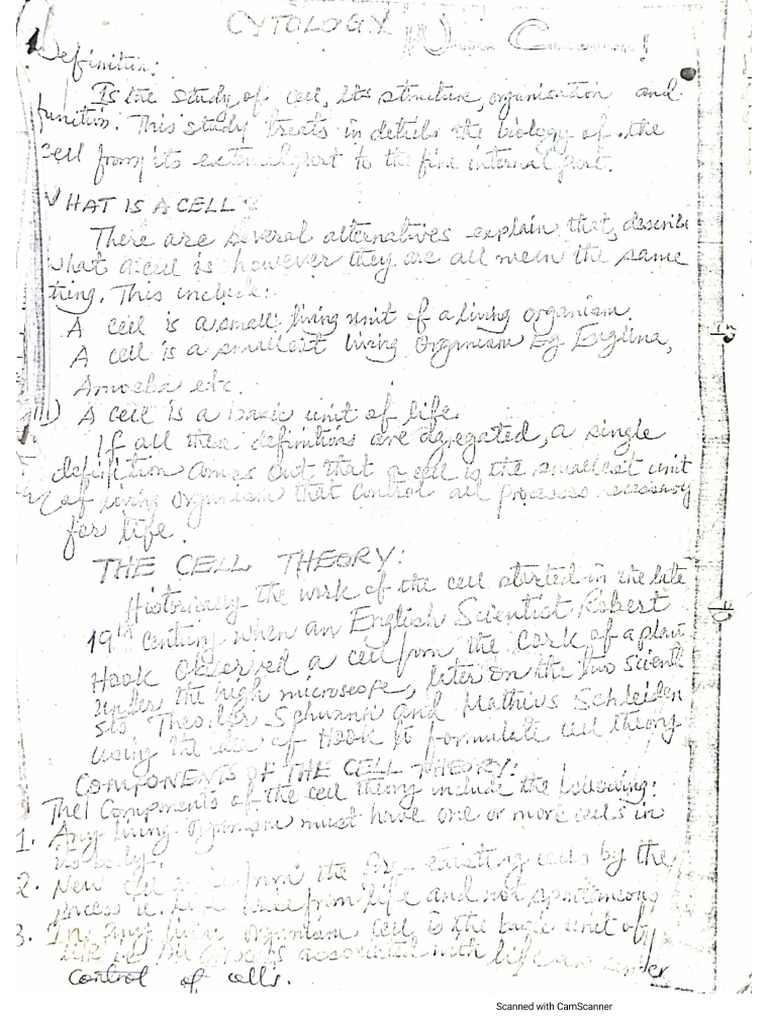 CYTOLOGY
Definition:
Is the study of cell, its structure, organisation and
function. This study treats in details the biology of the
cell from its external part to the fine internal part.
WHAT IS A CELL?
There are several alternatives explain that, describe
what a cell is however they are all mean the same
thing. This include:
A cell is a small living unit of a living organism.
A cell is a smallest living organism Eg Euglena,
Amoeba etc.
iii) A cell is a basic unit of life.
If all these definitions are agregated, a single
definition comes out that a cell is the smallest unit
of living organism that control all processes necessary
for life.
THE CELL THEORY:
Historically the work of the cell started in the late
19th century when an English Scientist Robert
Hook observed a cell from the cork of a plant
under the high microscope, later on the two scienti
sts Theodor Schwann and Mathius Schleiden
using the idea of Hook to formulate cell theory
COMPONENTS OF THE CELL THEORY:
The Components of the cell theory include the following:
1. Any living organism must have one or more cells in
its body.
2. New cell from the Pre-existing cells by the
process ie. Life from life and not spontaneous
3. In any living organism cell is the basic unit of
life ie all process associated with life are under
control of cells.
Scanned with CamScanner